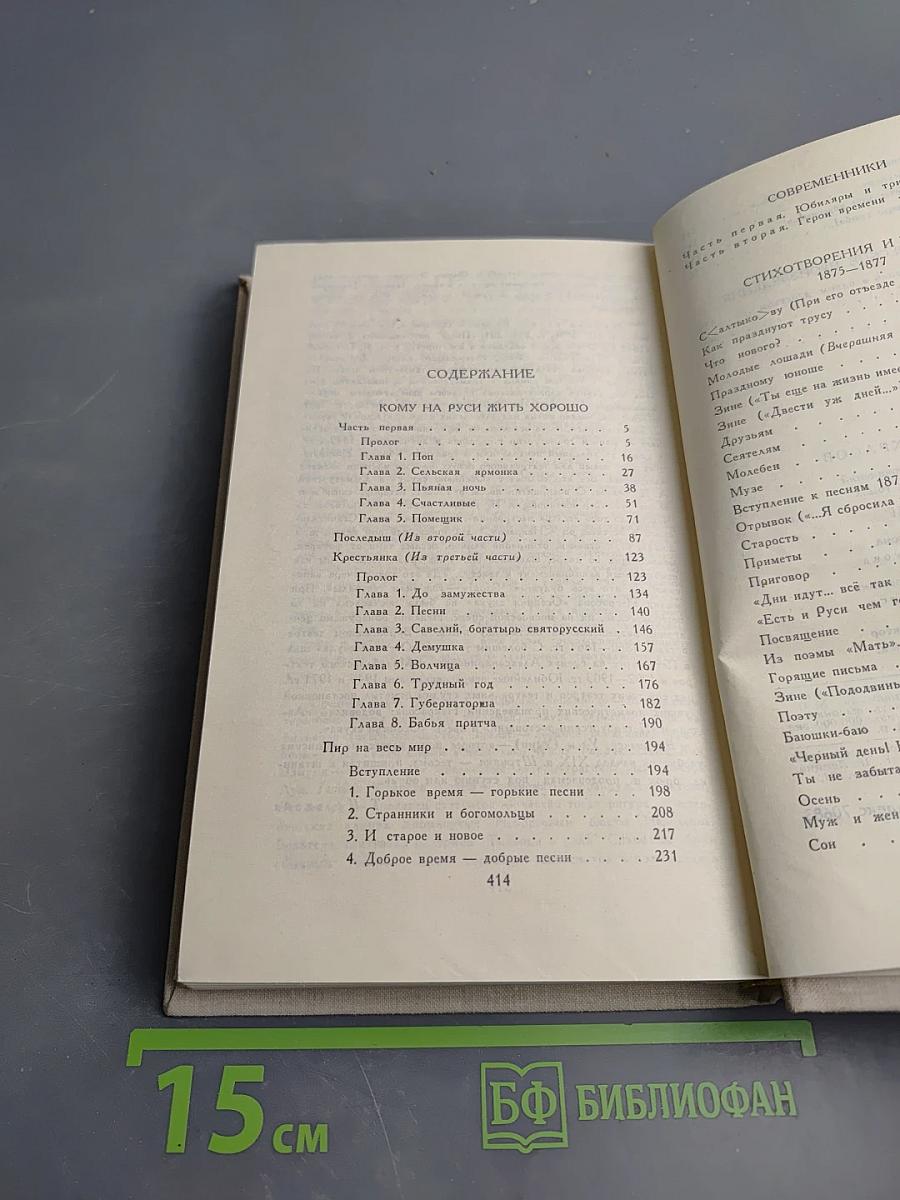 СОДЕРЖАНИЕ
КОМУ НА РУСИ ЖИТЬ ХОРОШО
Часть первая . . . . . . . . . . . . . 5
Пролог . . . . . . . . . . . . . 5
Глава 1. Поп . . . . . . . . . . . 16
Глава 2. Сельская ярмонка . . . . . . 27
Глава 3. Пьяная ночь . . . . . . . . 38
Глава 4. Счастливые . . . . . . . . 51
Глава 5. Помещик . . . . . . . . . 71
Последыш (Из второй части) . . . . . . . 87
Крестьянка (Из третьей части) . . . . . . 123
Пролог . . . . . . . . . . . . . 123
Глава 1. До замужества . . . . . . . 134
Глава 2. Песни . . . . . . . . . . 140
Глава 3. Савелий, богатырь святорусский . 146
Глава 4. Демушка . . . . . . . . . 157
Глава 5. Волчица . . . . . . . . . 167
Глава 6. Трудный год . . . . . . . . 176
Глава 7. Губернаторша . . . . . . . 182
Глава 8. Бабья притча . . . . . . . 190
Пир на весь мир . . . . . . . . . . . 194
Вступление . . . . . . . . . . . 194
1. Горькое время — горькие песни . . . 198
2. Странники и богомольцы . . . . . . 208
3. И старое и новое . . . . . . . . . 217
4. Доброе время — добрые песни . . . . 231
414
СОВРЕМЕННИКИ
Часть первая. Юбиляры и
Часть вторая. Герои времени
СТИХОТВОРЕНИЯ И
1875—1877
С<алтыко>ву (При его отъезде
Как празднуют трусу . . . .
Что нового? . . . . . .
Молодые лошади (Вчерашняя
Праздному юноше . . .
Зине («Ты еще на жизнь
Зине («Двести уж дней...»
Друзьям . . . .
Сеятелям . . . .
Молебен . . . .
Музе . . . . .
Вступление к песням
Отрывок («...Я сбросила
Старость . . .
Приметы . . .
Приговор . . .
«Дни идут... всё так
«Есть и Руси чем
Посвящение . .
Из поэмы «Мать».
Горящие письма .
Зине
Поэту . . .
Баюшки-баю .
«Черный день!
Ты не забыта
Осень . . .
Муж и
Сон . . .
15 см
БФ БИБЛИОФАН